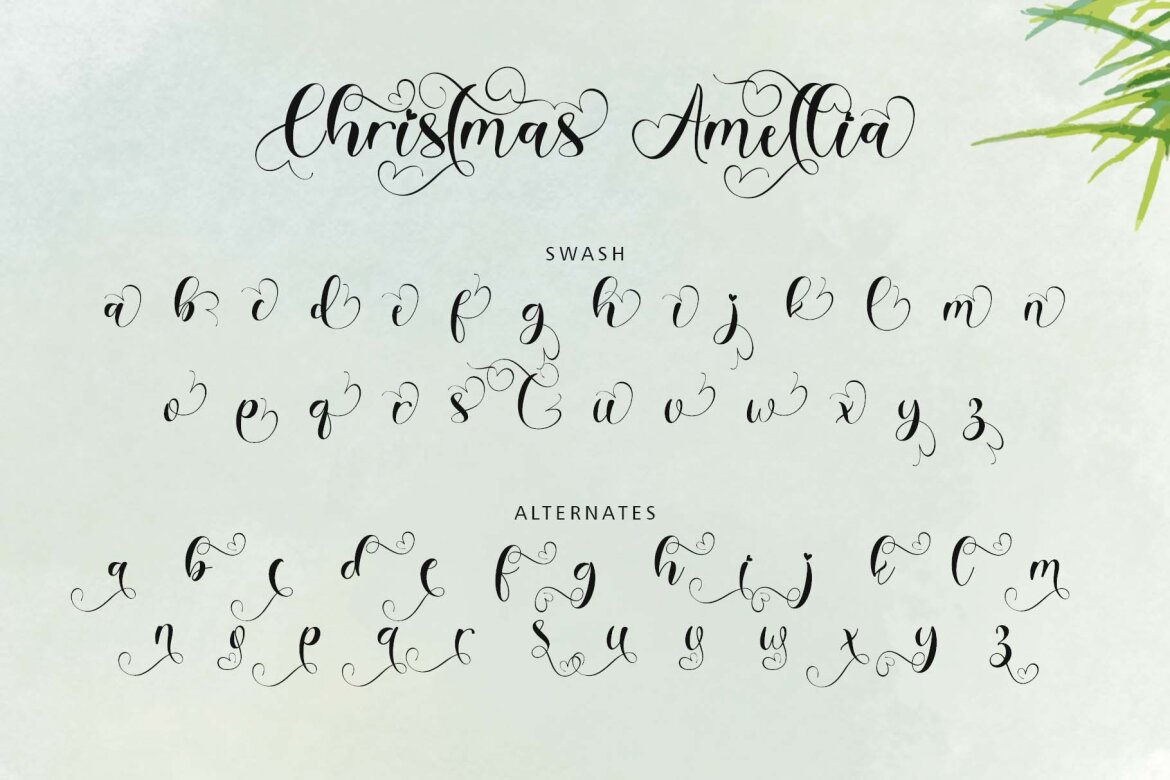 Christmas Amellia
SWASH
a b c d e f g h i j k l m n
o p q r s t u v w x y z
ALTERNATES
a b c d e f g h i j k l m
n o p q r s u v w x y z